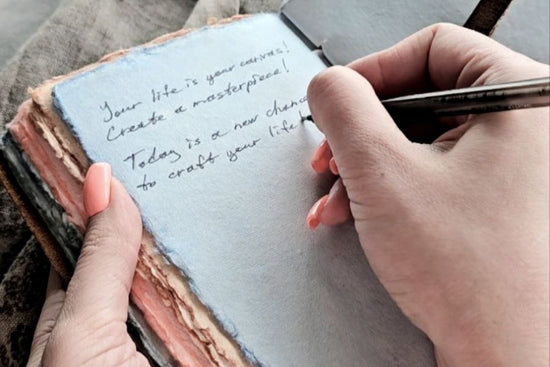 Your life is your canvas!
Create a masterpiece!
Today is a new chanc
to craft your life